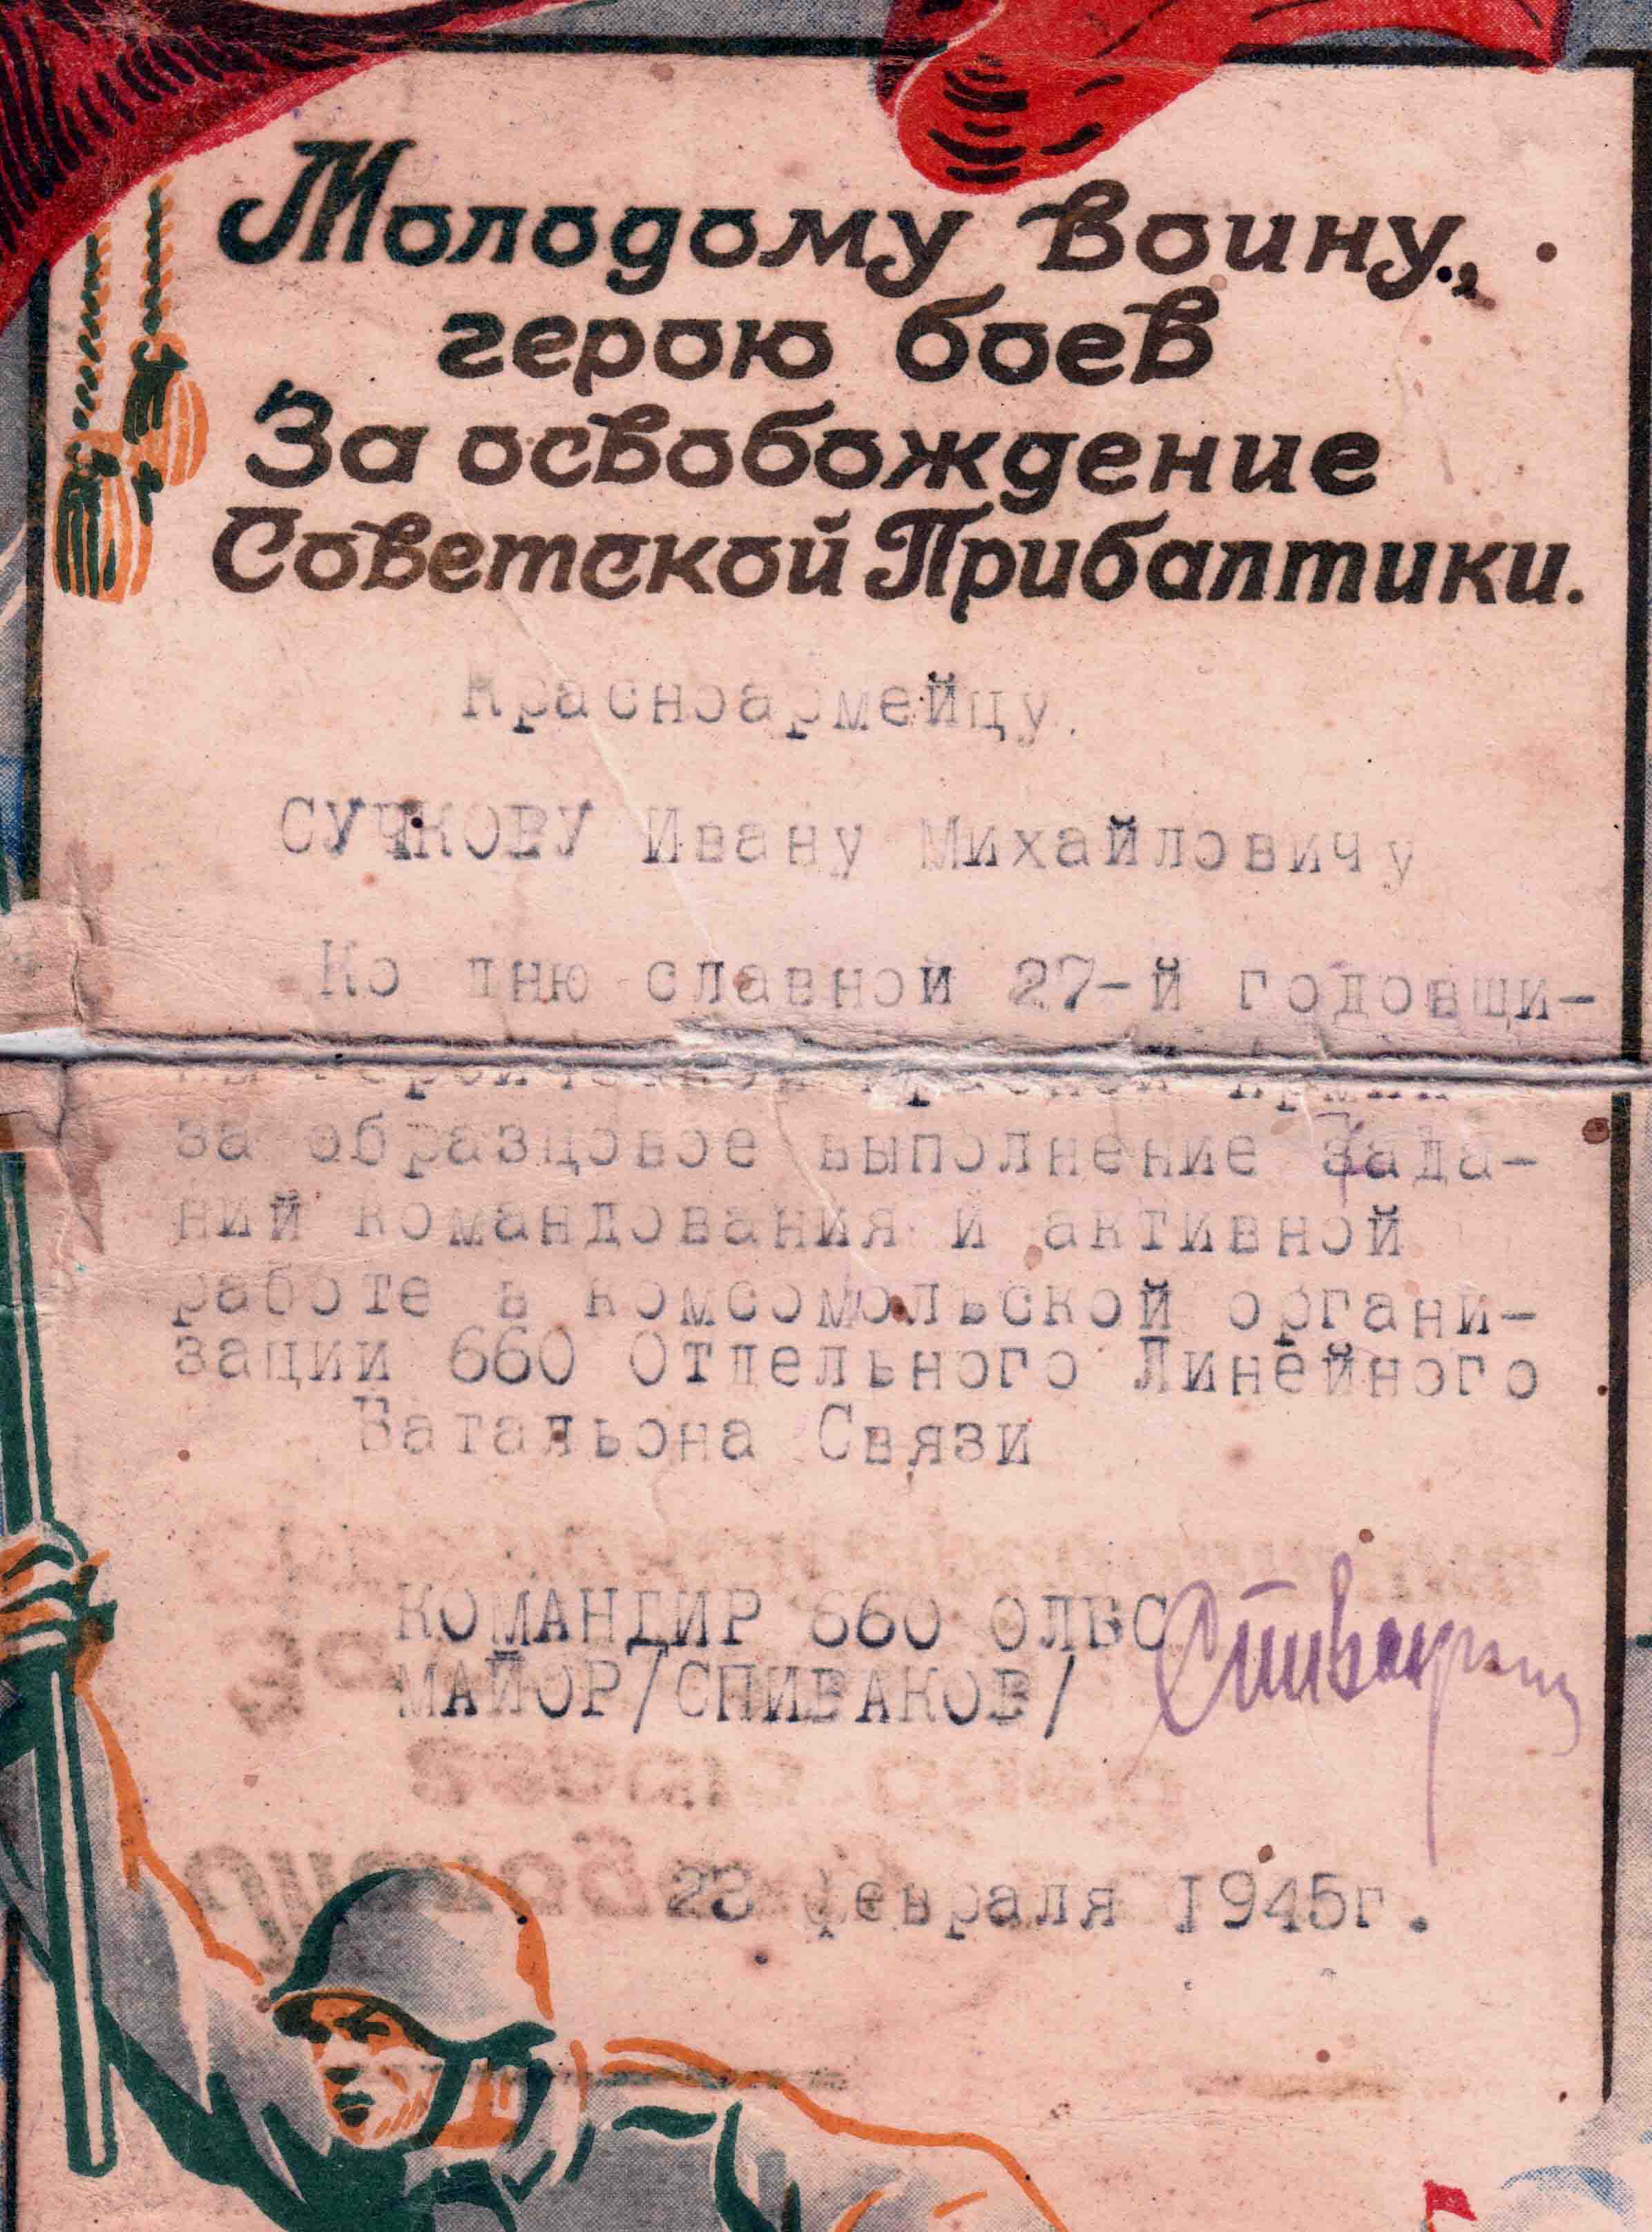 Молодому воину,
герою боев
За освобождение
Советской Прибалтики.
Красноармейцу.
СУЧКОВУ Ивану Михайловичу
Ко дню славной 27-й годовщи-
ны героической Красной Армии
за образцовое выполнение зада-
ний командования и активной
работе в комсомольской органи-
зации 660 Отдельного Линейного
Батальона Связи
КОМАНДИР 660 ОЛБС
МАЙОР/СПИВАКОВ/
23 февраля 1945г.